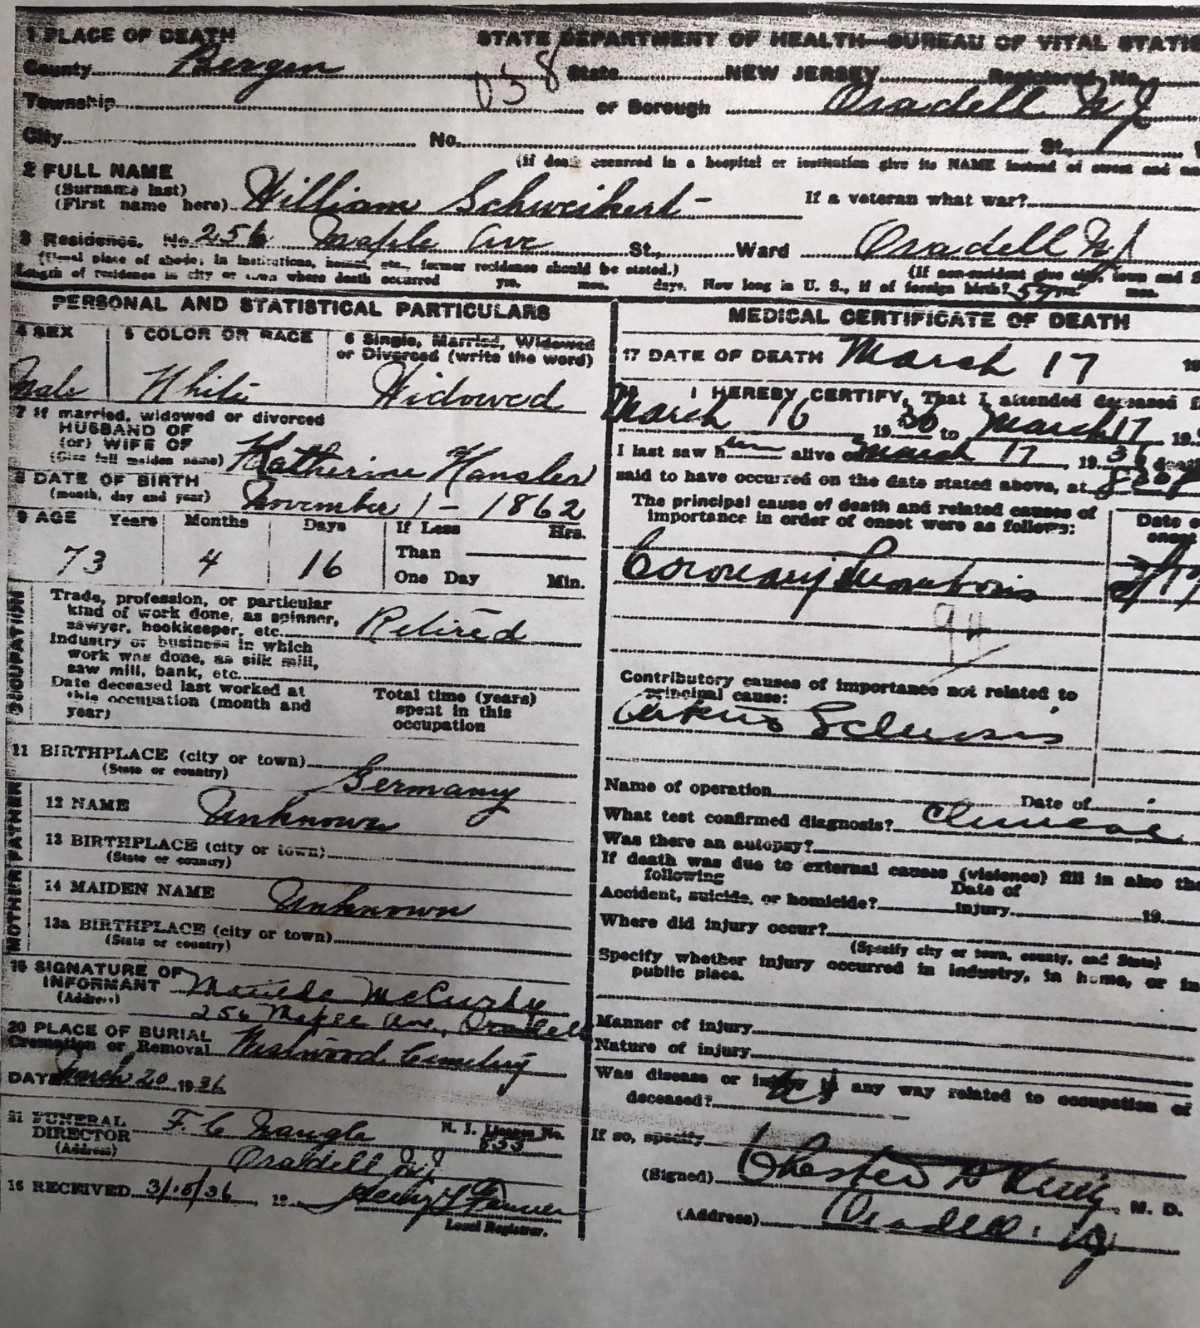 1 PLACE OF DEATH STATE DEPARTMENT OF HEALTH—BUREAU OF VITAL STATIS
County Bergen 038 State NEW JERSEY Registered No.
Township or Borough Oradell NJ
City No. St.,
(If death occurred in a hospital or institution give its NAME instead of street and nu
2 FULL NAME
(Surname last)
(First name here) William Schweikert If a veteran what war?
3 Residence. No. 256 Maple Ave St., Ward Oradell NJ
(Usual place of abode, in institutions, homes, etc., former residence should be stated.) (If non-resident give city, town and S
Length of residence in city or town where death occurred yrs. mos. days. How long in U. S., if of foreign birth? yrs. mos.
PERSONAL AND STATISTICAL PARTICULARS
4 SEX 5 COLOR OR RACE 6 Single, Married, Widowed
or Divorced (write the word)
Male White Widowed
7 If married, widowed or divorced
HUSBAND OF
(or) WIFE OF
(Give full maiden name) Katherine Hansler
8 DATE OF BIRTH
(month, day and year) November 1 - 1862
9 AGE Years Months Days If Less Hrs.
Than
73 4 16 One Day Min.
OCCUPATION
Trade, profession, or particular
kind of work done, as spinner,
sawyer, bookkeeper, etc. Retired
Industry or business in which
work was done, as silk mill,
saw mill, bank, etc.
Date deceased last worked at
this occupation (month and
year)
Total time (years)
spent in this
occupation
11 BIRTHPLACE (city or town)
(State or country) Germany
FATHER
12 NAME Unknown
13 BIRTHPLACE (city or town)
(State or country)
MOTHER
14 MAIDEN NAME Unknown
13a BIRTHPLACE (city or town)
(State or country)
15 SIGNATURE OF
INFORMANT Matilda McCurdy
(Address) 256 Maple Ave, Oradell
20 PLACE OF BURIAL
Cremation or Removal Westwood Cemetery
DATE March 20 1936
21 FUNERAL
DIRECTOR F. C Naugle N. J. License No.
(Address) Oradell NJ
16 RECEIVED 19
Local Registrar.
MEDICAL CERTIFICATE OF DEATH
17 DATE OF DEATH March 17 19
I HEREBY CERTIFY, That I attended deceased f
March 16 1936 to March 17 19
I last saw h alive on March 17, 1936 death
said to have occurred on the date stated above, at
The principal cause of death and related causes of
importance in order of onset were as follows:
Date o
onset
Coronary Thrombosis
94
Contributory causes of importance not related to
principal cause:
Arterio Sclerosis
Name of operation Date of
What test confirmed diagnosis? Clinical
Was there an autopsy?
If death was due to external causes (violence) fill in also the
following
Accident, suicide, or homicide? Date of
injury 19
Where did injury occur?
(Specify city or town, county, and State)
Specify whether injury occurred in industry, in home, or in
public place.
Manner of injury
Nature of injury
Was disease or injury in any way related to occupation of
deceased?
If so, specify
(Signed) Chester M. D.
(Address) Oradell. NJ